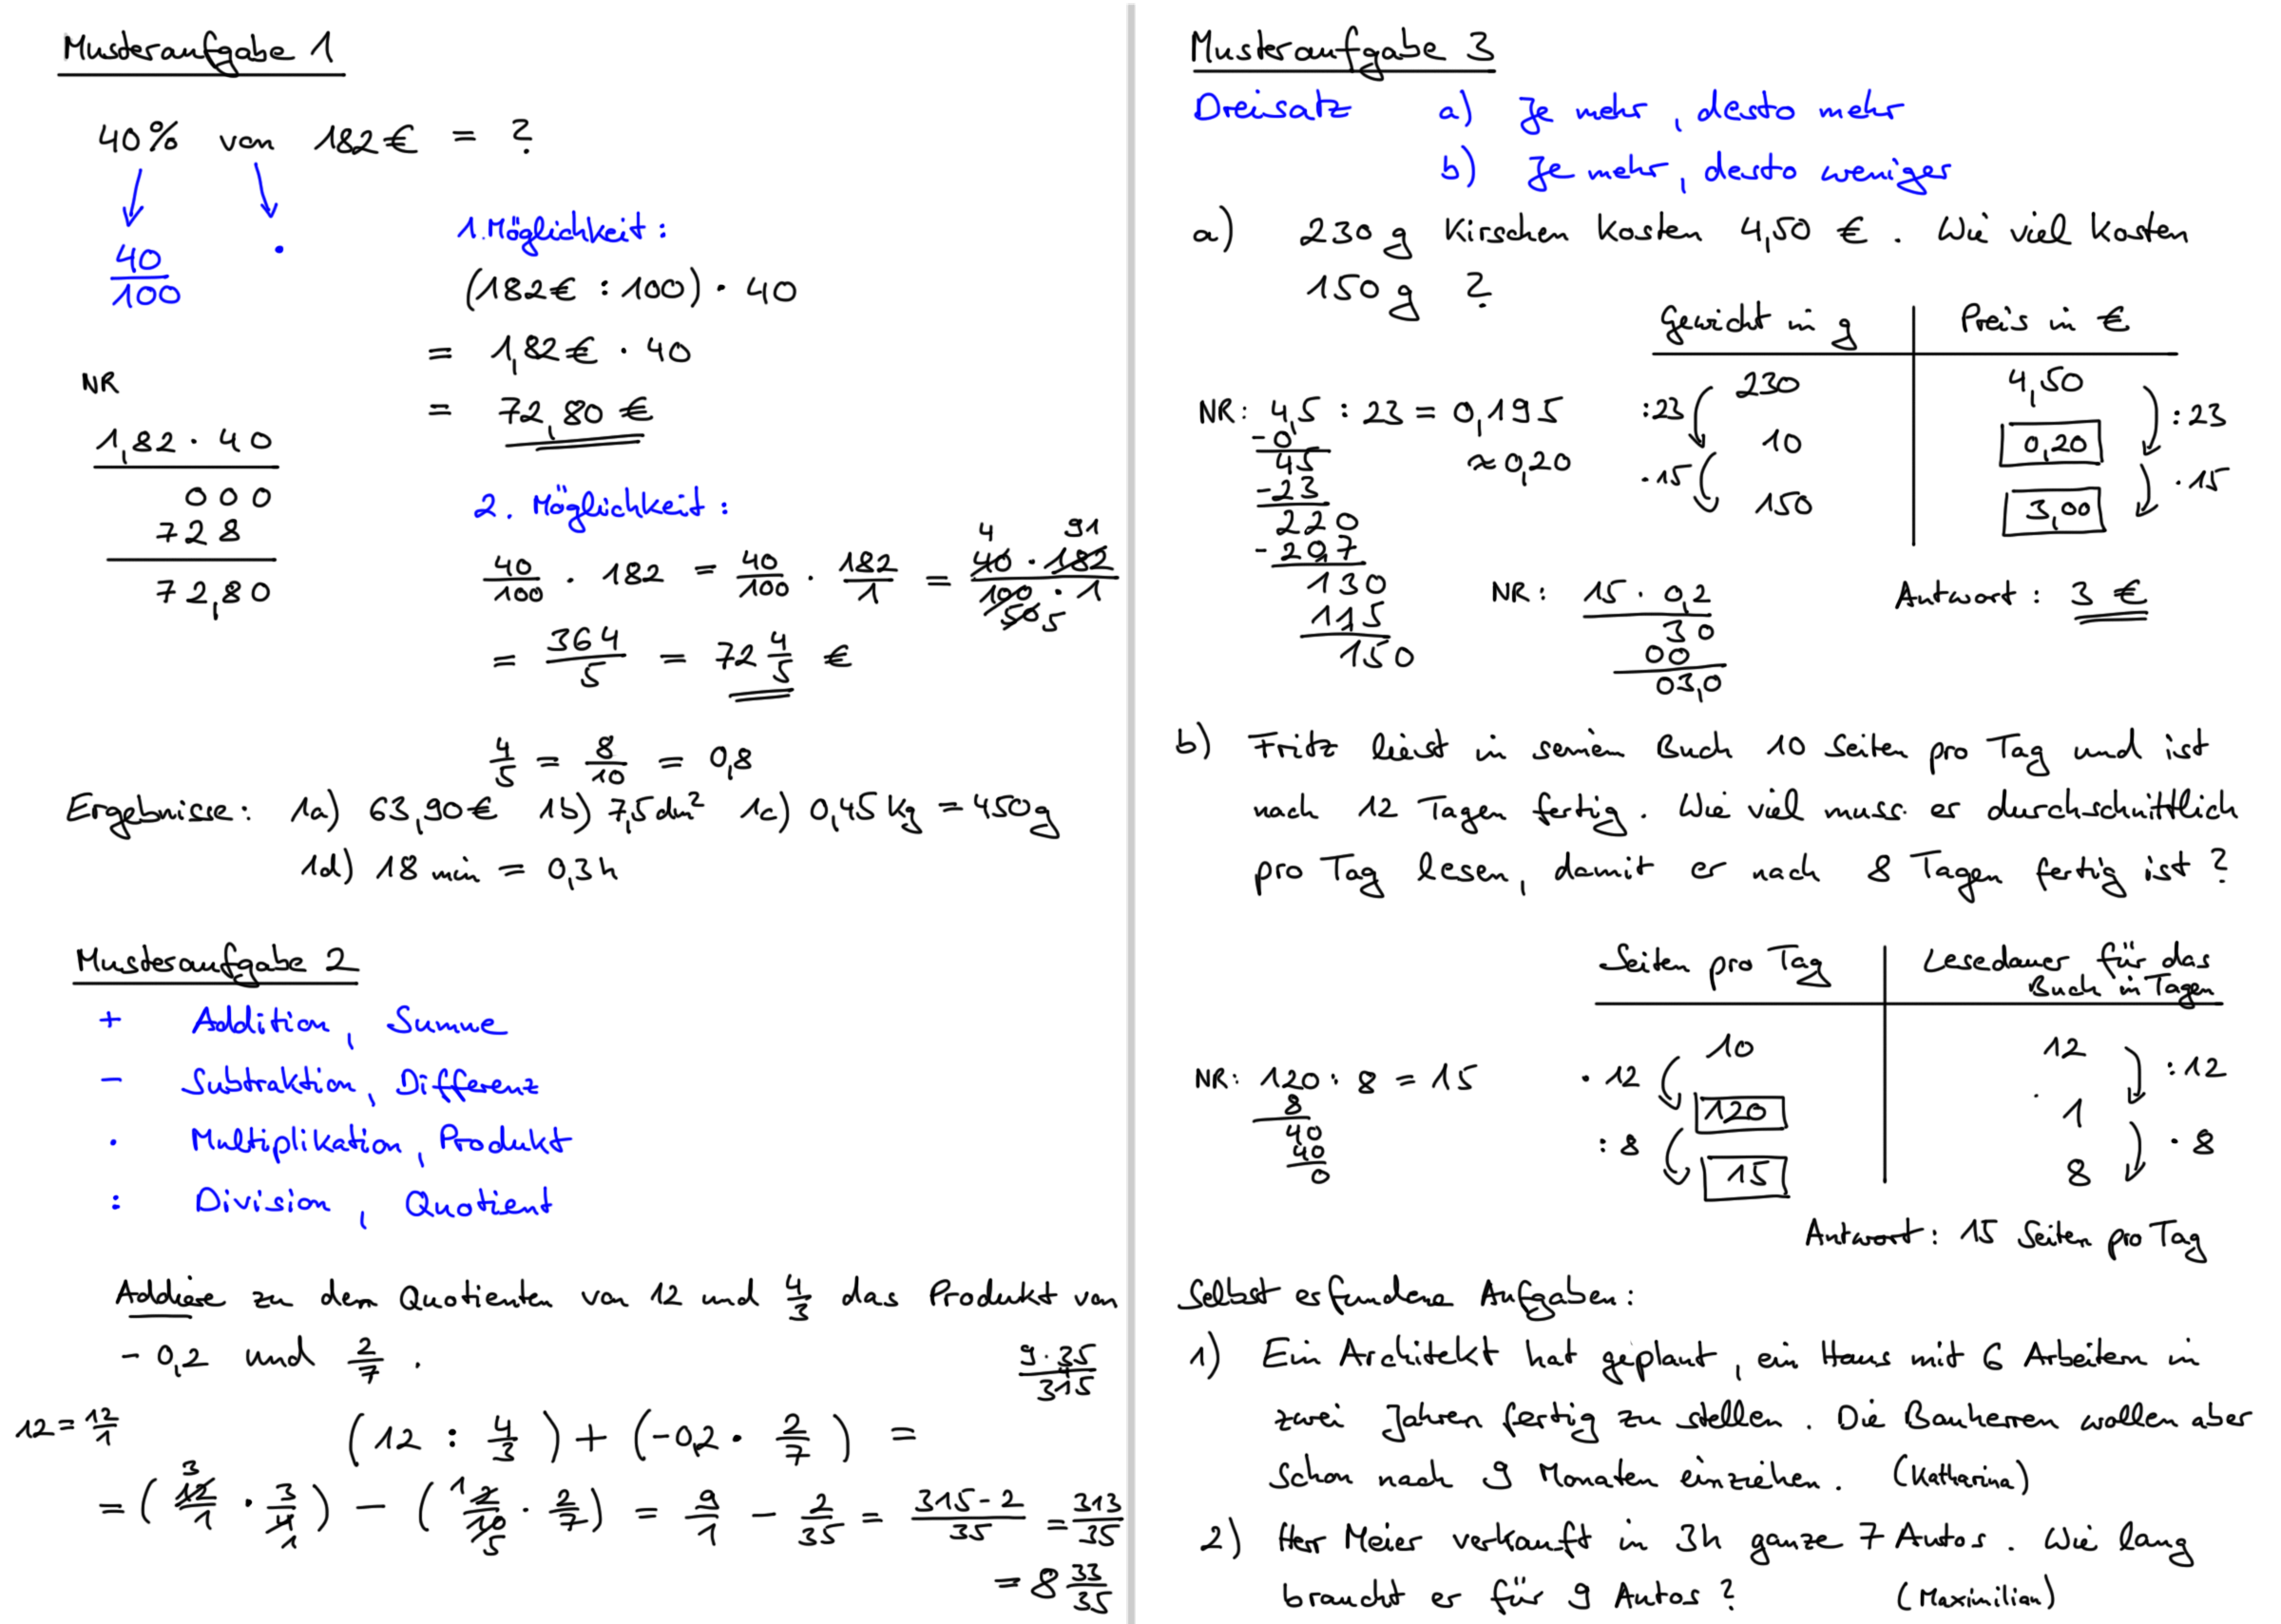 Musteraufgabe 1
40% von 182€ = ?
40/100 ·
1. Möglichkeit:
(182€ : 100) · 40
= 1,82€ · 40
= 72,80 €
NR
1,82 · 40
000
728
72,80
2. Möglichkeit:
40/100 · 182 = 40/100 · 182/1 = 40 · 182 / 100 · 1
4 91
50 5
= 364/5 = 72 4/5 €
4/5 = 8/10 = 0,8
Ergebnisse: 1a) 63,90€ 1b) 7,5 dm² 1c) 0,45 kg = 450g
1d) 18 min = 0,3 h
Musteraufgabe 2
+ Addition, Summe
− Subtraktion, Differenz
· Multiplikation, Produkt
: Division, Quotient
Addiere zu dem Quotienten von 12 und 4/3 das Produkt von
− 0,2 und 2/7.
9 · 35
4
315
12 = 12/1
(12 : 4/3) + (−0,2 · 2/7) =
3 1
= (12/1 · 3/4) − (2/10 · 2/7) = 9/1 − 2/35 = 315 − 2 / 35 = 313/35
1 5
= 8 33/35
Musteraufgabe 3
Dreisatz a) Je mehr, desto mehr
b) Je mehr, desto weniger
a) 230 g Kirschen kosten 4,50 €. Wie viel kosten
150 g ?
Gewicht in g Preis in €
:23 230 4,50 :23
10 0,20
·15 150 3,00 ·15
NR: 4,5 : 23 = 0,195
≈ 0,20
-0
45
-23
220
-207
130
115
150
NR: 15 · 0,2
30
00
03,0
Antwort: 3 €
b) Fritz liest in seinem Buch 10 Seiten pro Tag und ist
nach 12 Tagen fertig. Wie viel muss er durchschnittlich
pro Tag lesen, damit er nach 8 Tagen fertig ist?
Seiten pro Tag Lesedauer für das
Buch in Tagen
· 12 10 12 : 12
120 1
: 8 15 8 · 8
NR: 120 : 8 = 15
8
40
40
0
Antwort: 15 Seiten pro Tag
Selbst erfundene Aufgaben:
1) Ein Architekt hat geplant, ein Haus mit 6 Arbeitern in
zwei Jahren fertig zu stellen. Die Bauherren wollen aber
schon nach 9 Monaten einziehen. (Katharina)
2) Herr Meier verkauft in 3h ganze 7 Autos. Wie lang
braucht er für 9 Autos? (Maximilian)